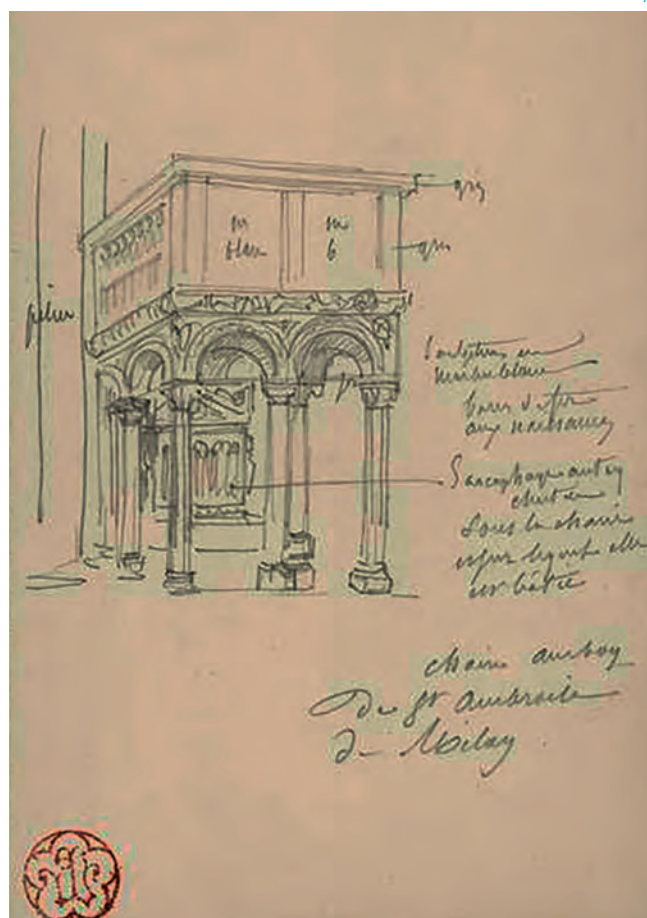 gris
m
blanc
m
b
gris
pilier
Sculptures en
marbre blanc
barres de fer
aux naissances
Sarcophage
chrétien
sous la chaire
et sur lequel elle
est bâtie
chaire ambon
de St Ambroise
de Milan